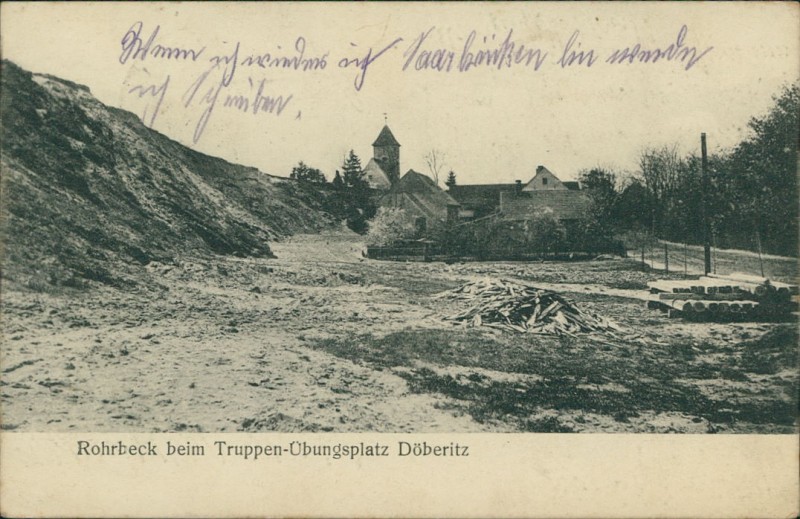 Wenn ich wieder ich Saarbrüken bin werde
ich Schreiben.
Rohrbeck beim Truppen-Übungsplatz Döberitz